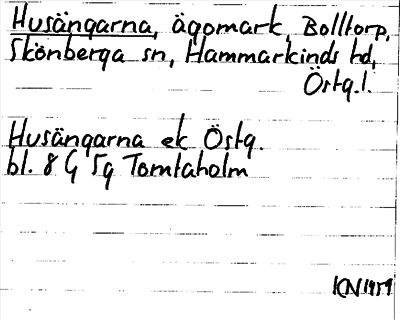 Husängarna, ägomark, Bolltorp,
Skönberga sn, Hammarkinds hd,
Östg.l.
Husängarna ek Östg.
bl. 8 G 5g Tomtaholm
KN 1959